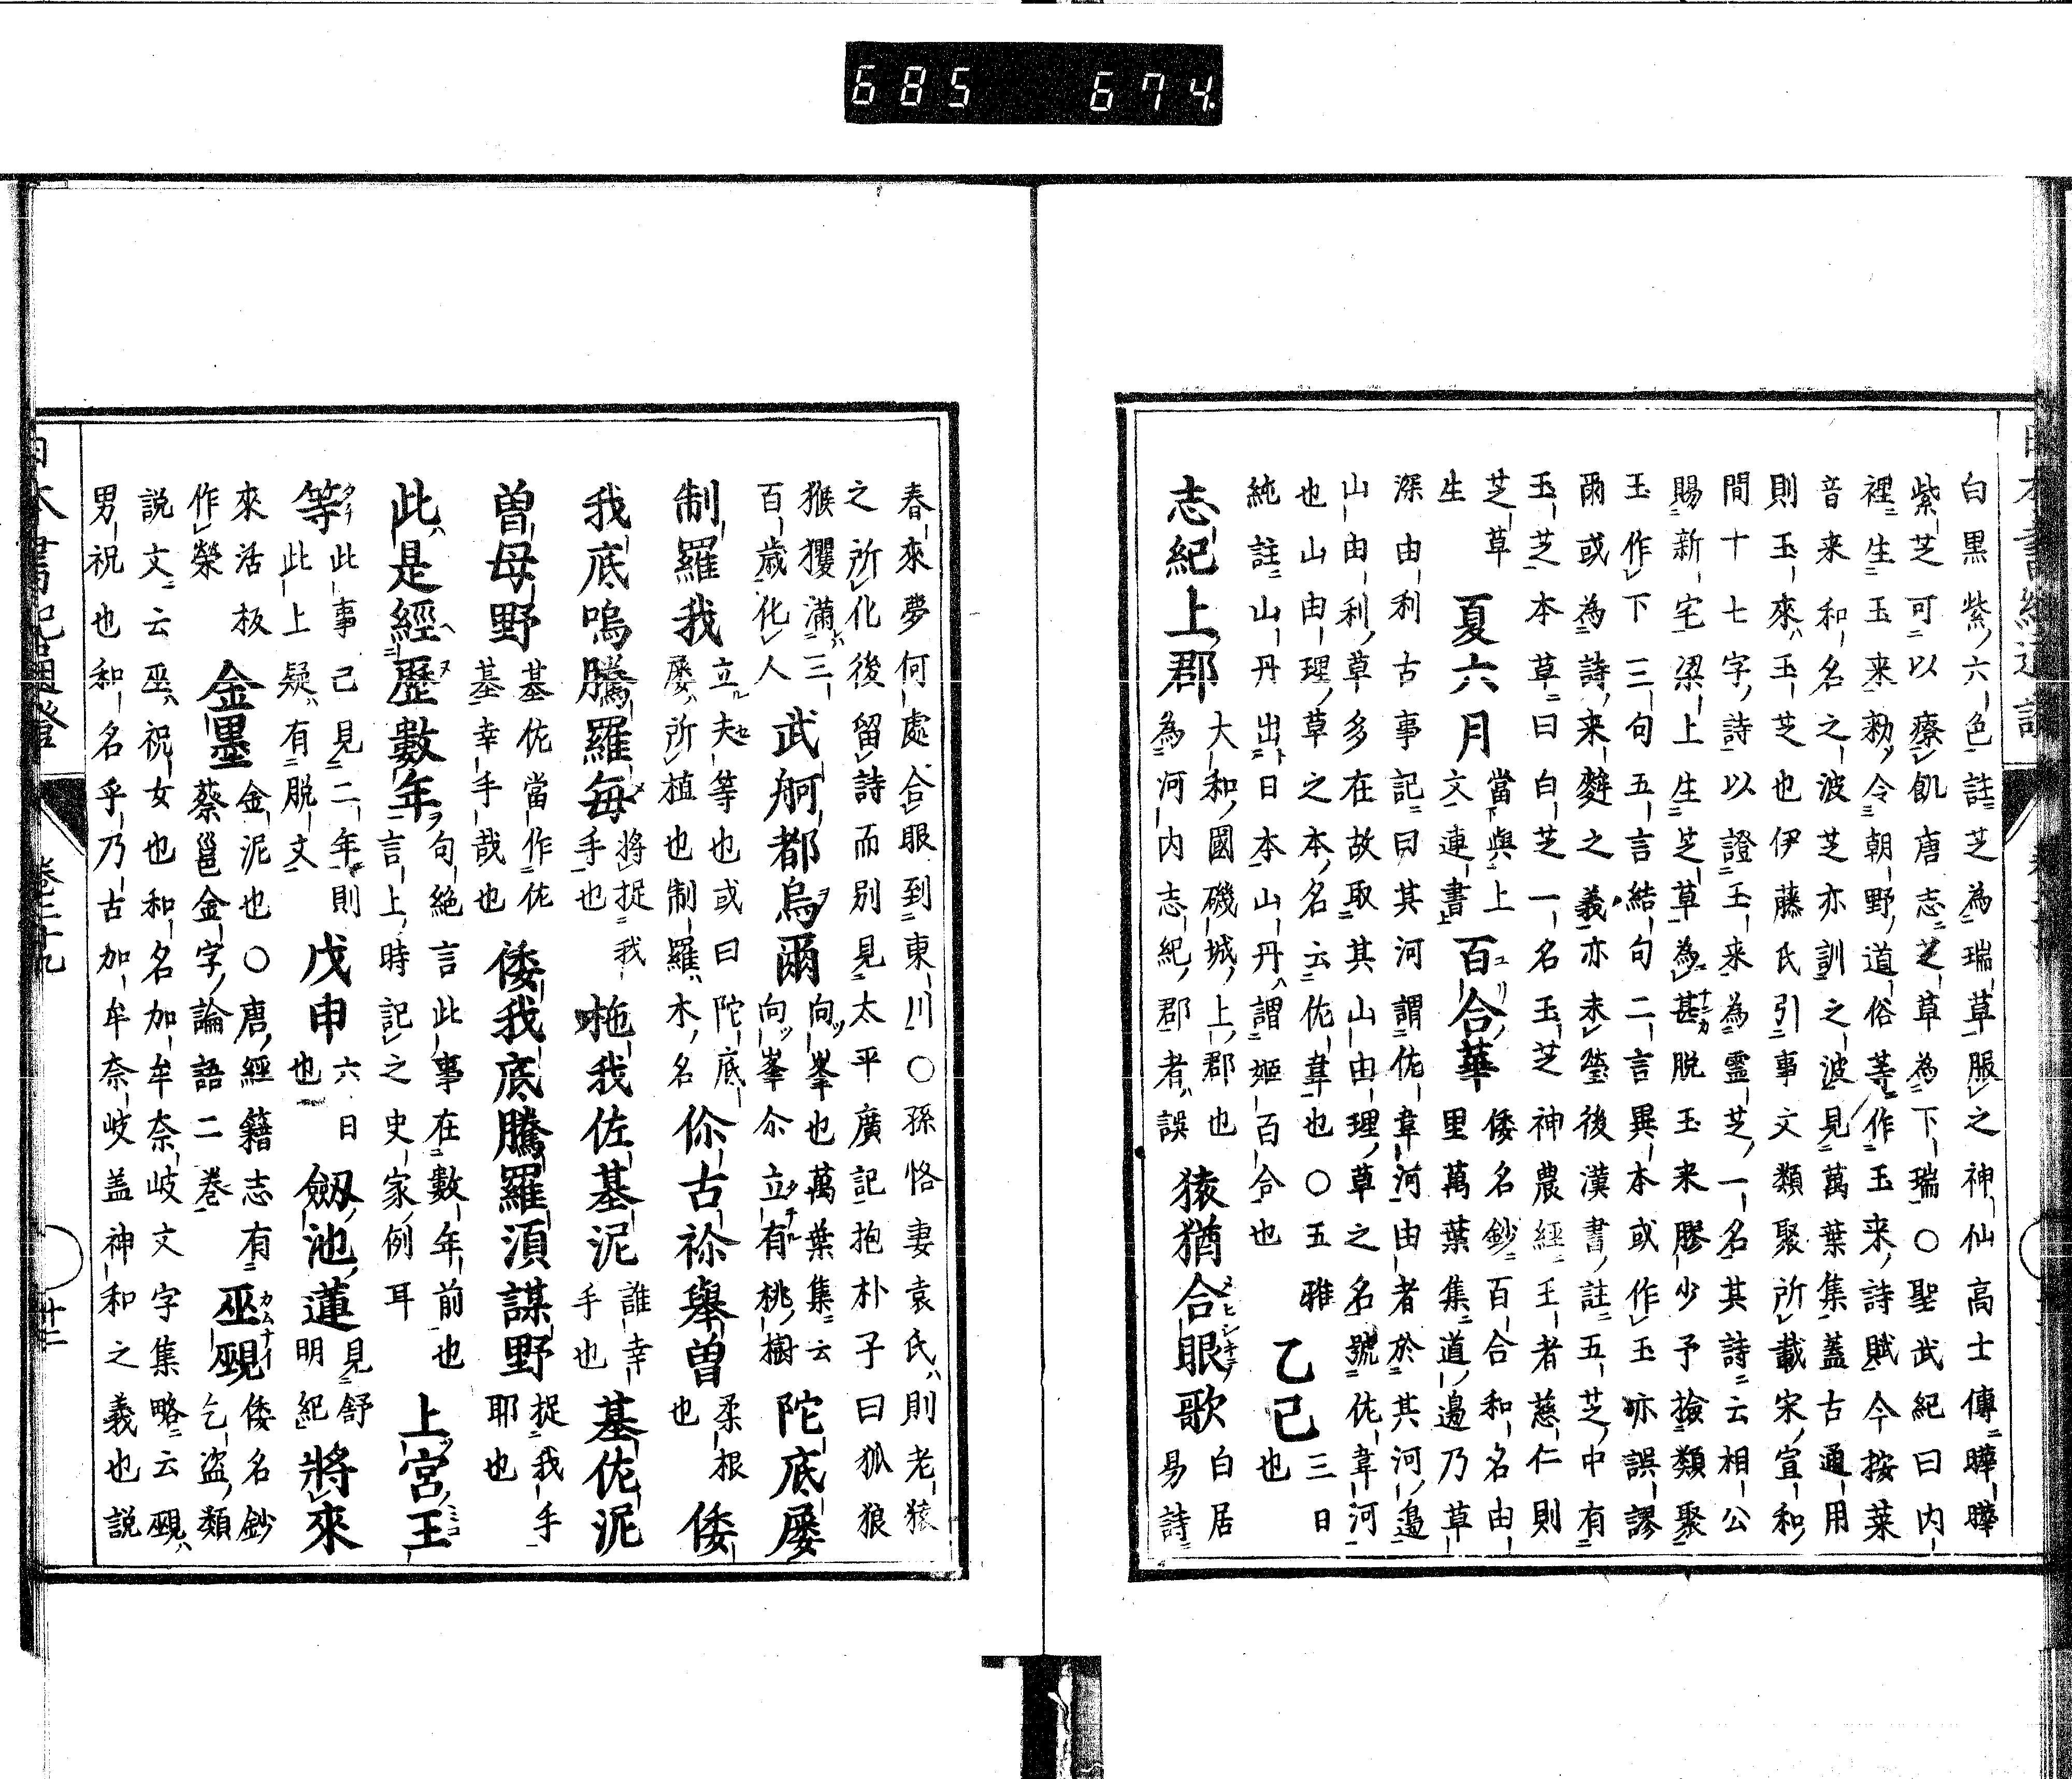 685 674
白黒紫六色註芝為瑞草服之神仙高士傳曄曄
紫芝可以療飢唐志芝草為下瑞○聖武紀曰内
裡生玉来勑令朝野道俗等作玉来詩賦今按葉
音来和名之波芝亦訓之波見萬葉集蓋古通用
則玉來玉芝也伊藤氏引事文類聚所載宋宣和
間十七字詩以證玉来為霊芝一名其詩云相公
賜新宅梁上生芝草為甚脱玉来膠少予撿類聚
玉作下三句五言結句二言異本或作玉亦誤謬
爾或為詩来辤之義亦未瑩後漢書註五芝中有
玉芝本草曰白芝一名玉芝神農經王者慈仁則
芝草
生
夏六月
當與上
文連書
百合華
倭名鈔百合和名由
里萬葉集道邊乃草
深由利古事記曰其河謂佐韋河由者於其河邊
山由利草多在故取其山由理草之名號佐韋河
也山由理草之本名云佐韋也○五雅
純註山丹出日本山丹謂姬百合也
乙己
三日
也
志紀上郡
大和國磯城上郡也
為河内志紀郡者誤
猿猶合眼歌
白居
易詩
春來夢何處合眼到東川○孫恪妻袁氏則老猿
之所化後留詩而別見太平廣記抱朴子曰狐狼
猴玃滿三
百歳化人
武舸都烏爾
向峯也萬葉集云
向峯尒立有桃樹
陀底屡
制羅我
立夫等也或曰陀底
屡所植也制羅木名
你古祢舉曽
柔根
也
倭
我底鳴騰羅毎
將捉我
手也
拖我佐基泥
誰幸
手也
基佐泥
曽母野
基佐當作佐
基幸手哉也
倭我底騰羅湏謀野
捉我手
耶也
此是經歷數年
句絶言此事在數年前也
言上時記之史家例耳
上宮王
等
此事已見二年則
此上疑有脱文
戊申
六日
也
劔池蓮
見舒
明紀
將來
來活板
作榮
金墨
金泥也○唐經籍志有
蔡邕金字論語二巻
巫覡
倭名鈔
乞盗類
説文云巫祝女也和名加牟奈岐文字集略云覡
男祝也和名乎乃古加牟奈岐盖神和之義也説
卷三十九
廿二